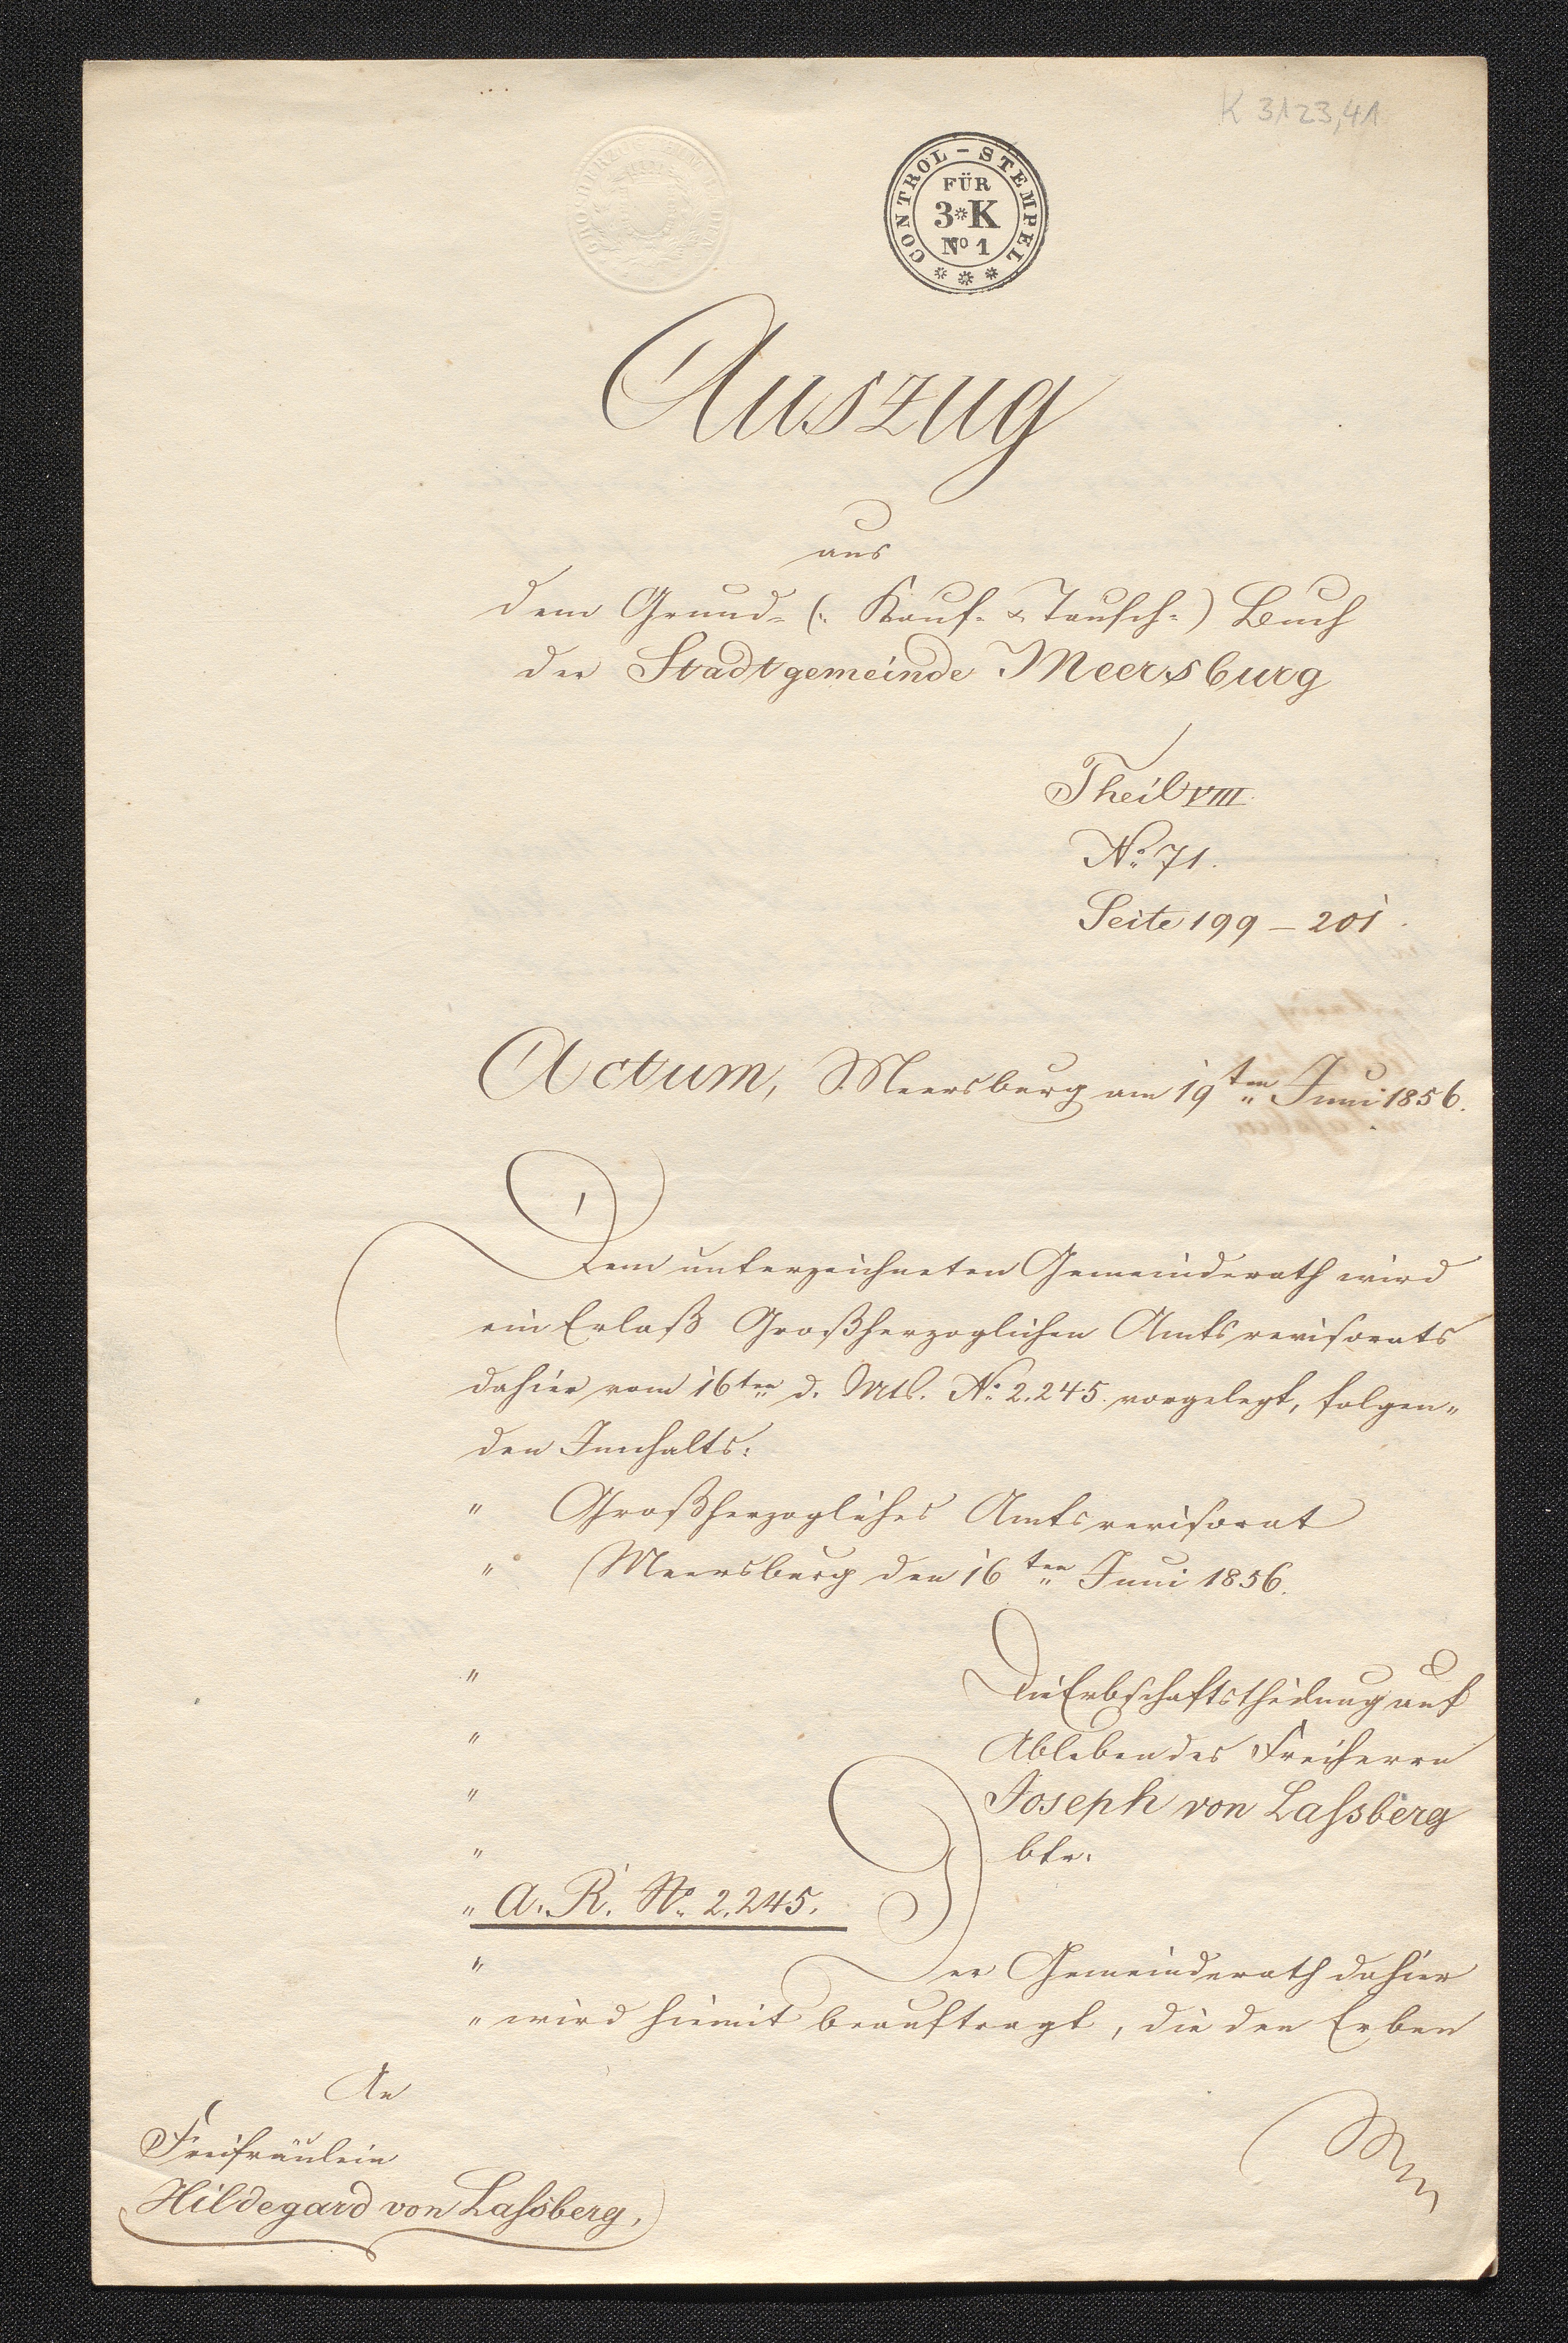 K 3123,41
CONTROL-STEMPEL
FÜR
3*K
No 1
Auszug
aus
dem Grund- (: Kauf- & Tausch-) Buch
der Stadtgemeinde Meersburg
Theil VIII.
No. 71.
Seite 199 – 201.
Actum, Meersburg am 19ten Juni 1856.
Dem unterzeichneten Gemeinderath wird
ein Erlaß Großherzoglichen Amtsrevisorats
dahier vom 16ten d. Mts. No. 2.245. vorgelegt, folgen„
den Innhalts:
„ Großherzogliches Amtsrevisorat
„ Meersburg den 16ten Juni 1856.
„ Die Erbschaftstheilung auf
„ Ableben des Freiherrn
„ Joseph von Laſsberg
„ btr.
„ A. R. No. 2.245.
„ Der Gemeinderath dahier
„ wird hiemit beauftragt, die den Erben
An
Freifräulein
Hildegard von Laſsberg.